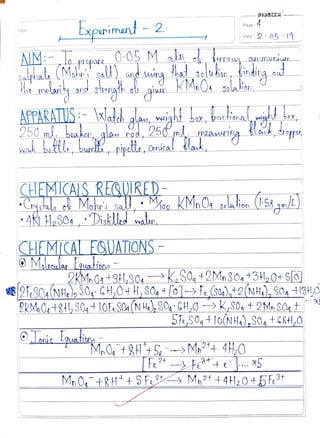 PIONEER
Page 4
Date 2·05·19
Experiment - 2
AIM:- To prepare 0·05 M soln of ferrous ammonium
sulphate (Mohr's salt) and using that solution, finding out
the molarity and strength of given KMnO4 solution.
APPARATUS:- Watch glass, weight box, fractional weight box,
250 ml. beaker, glass rod, 250 ml. measuring flask, dropper,
wash bottle, burette, pipette, conical flask.
CHEMICALS REQUIRED-
• Crystals of Mohr's salt, • M/100 KMnO4 solution (1.58 gm/L)
• 4N H2SO4, • Distilled water.
CHEMICAL EQUATIONS -
Molecular Equations-
2KMnO4+3H2SO4 → K2SO4+2MnSO4+3H2O+5[O]
[2FeSO4(NH4)2SO4·6H2O+H2SO4+[O] → Fe2(SO4)3+2(NH4)2SO4+13H2O] x5
2KMnO4+8H2SO4+10FeSO4(NH4)2SO4·6H2O → K2SO4+2MnSO4+
5Fe2(SO4)3+10(NH4)2SO4+68H2O
Ionic Equation-
MnO4⁻+8H⁺+5e⁻ → Mn²⁺+4H2O
[Fe²⁺ → Fe³⁺+e⁻]....x5
MnO4⁻+8H⁺+5Fe²⁺ → Mn²⁺+4H2O+5Fe³⁺